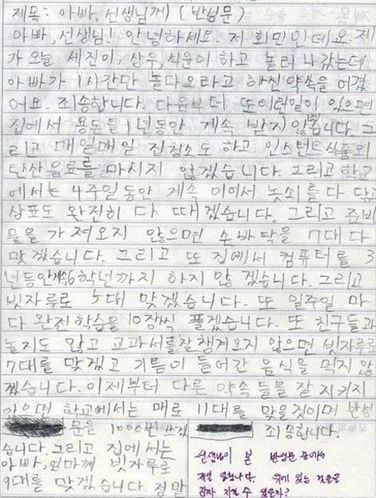 제목: 아빠, 선생님께 (반성문)
아빠, 선생님! 안녕하세요. 저 회민인데요. 제
가 오늘 세진이, 상우, 식운이 하고 놀러 나갔는데
아빠가 1시간만 놀다오라고 하신약속을 어겼
어요. 죄송합니다. 다음부터 또이런일이 있으면
집에서 용돈을 1년동안 계속 받지 않겠습니다. 그
리고 매일매일 집청소도 하고 인스턴트식품와
탄산음료를 마시지 않겠습니다. 그리고 학교
에서는 4주일동안 계속 이어서 놋쇠를 다 닦고
상표도 완전히 다 떼겠습니다. 그리고 준비
물을 가져오지 않으면 손바닥을 7대 다
맞겠습니다. 그리고 또 집에서 컴퓨터를 3
년동안 6학년까지 하지 않겠습니다. 그리고
빗자루로 5대 맞겠습니다. 또 일주일 마
다 완전학습을 10장씩 풀겠습니다. 또 친구들과
놀지도 않고 교과서를 잘챙겨오지 않으면 빗자루로
7대를 맞겠고 기름이 들어간 음식을 먹지 않
겠습니다. 이제부터 다른 약속들을 잘 지키지
않으면 학교에서는 매로 11대를 맞을것이며 반성
문을 1000번 죄송합니다.
습니다. 그리고 집에서는
아빠, 엄마께 빗자루로
9대를 맞겠습니다. 정말
선생님이 본 반성문 중에서
제일 입니다. 여기 있는 것들을
전부 지킬 수 있을까?